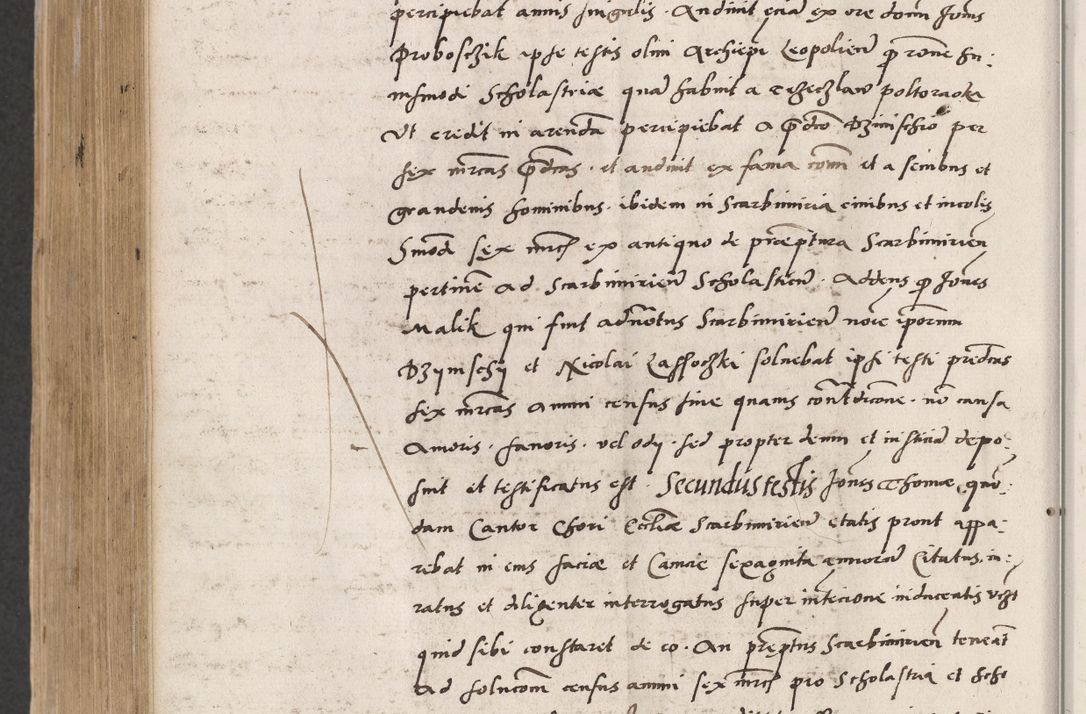 percipiebat annis singulis. Audivit eciam ex ore domi Joannis
Proboszczik ipse testis olim Archiepi Leopolien p rone hu:
iusmodi Scholastriae quam habuit a Trzeczlaw poltoraoka
Ut credit in arenda percipiebat a pdco Dzinischio per
sex mrcas pdcas. et audivit ex fama com et a senibus et
grandevis hominibus. ibidem in Scarbimiria civibus et incolis
Smodi sex mrcas ex antiquo de praeptura Scarbimirien
pertinen ad Scarbimirien Scholastriem. Addens q Joannes
Malik qui fuit advocatus Scarbimirien noie iporum
Dzinischy et Nicolai Lassoczki solvebat ipsi testi predcas
sex mrcas annui census sine quavis contradictione. no causa
Amoris. favoris. vel odij. sed propter deum et iusticiam depo:
suit et testificatus est. Secundus testis Joannes Thomae, quo:
dam Cantor Chori Eccliae Scarbimirien etatis prout appa:
rebat in eius faciae et Canicie sexaginta annorum Citatus, iu:
ratus et diligenter interrogatus super intencione inducentis vcz
quid sibi constaret de eo. An preptus Scarbimirien teneat
ad solucom census annui sex mrcas pro Scholastria et Scho